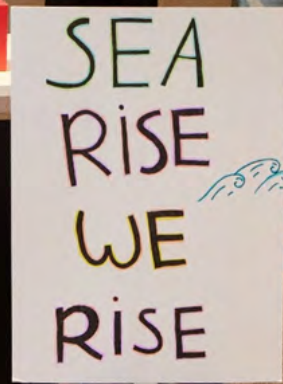 SEA
RiSE
WE
RiSE